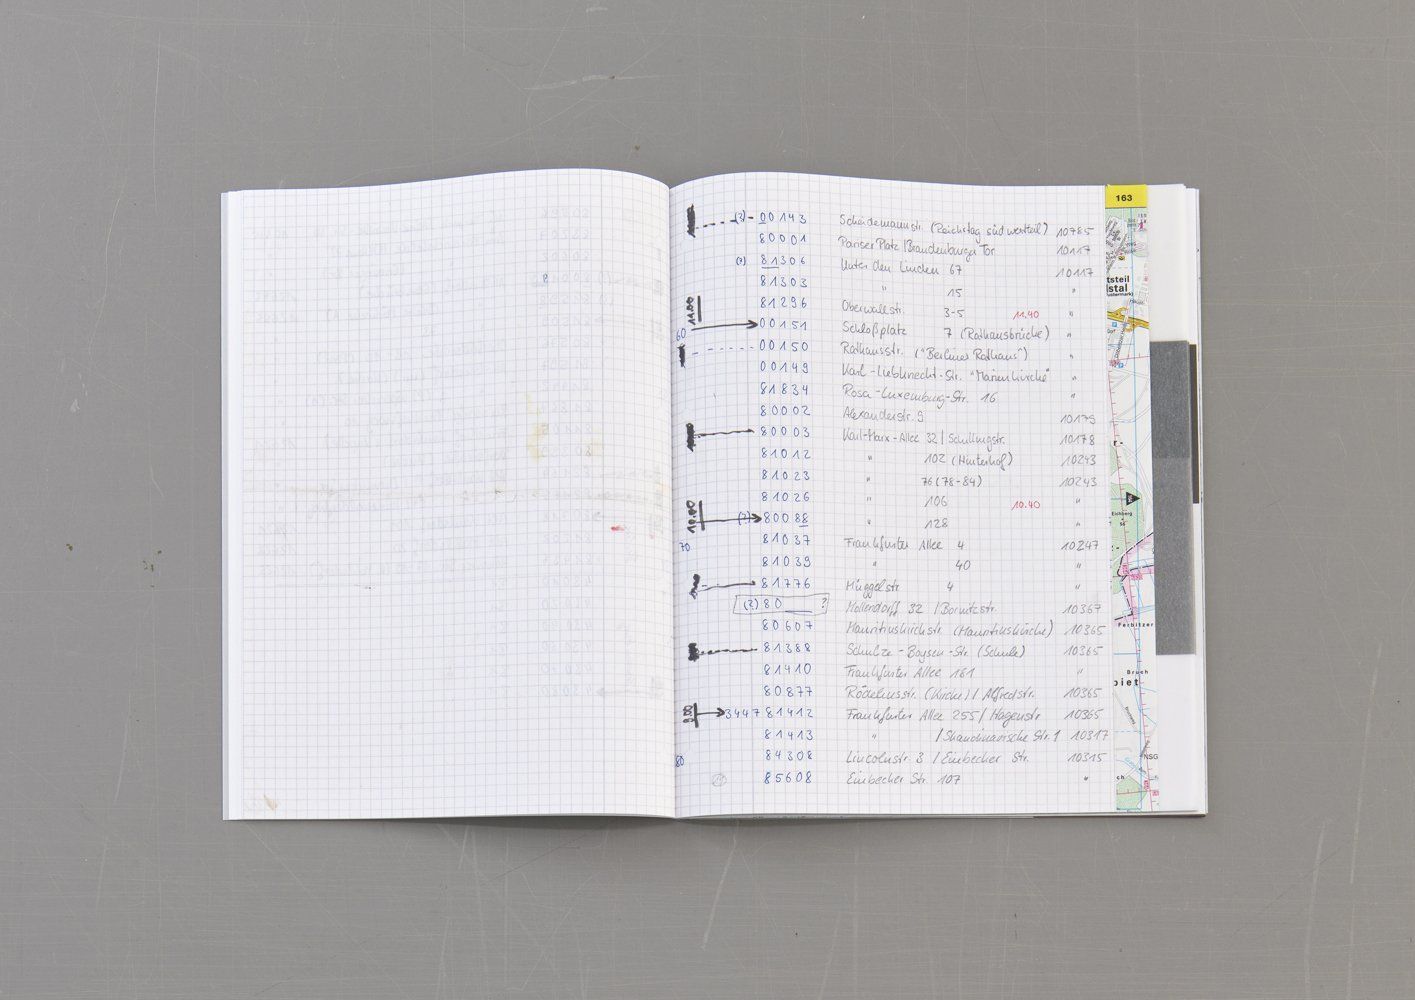 (?) 00143 Scheidemannstr. (Reichstag südwestteil) 10785
80001 Pariser Platz / Brandenburger Tor 10117
(?) 81306 Unter den Linden 67 10117
81303 " 15 "
11.00 81296 Oberwallstr. 3-5 11.40 "
60 00151 Schloßplatz 7 (Rathausbrücke) "
00150 Rathausstr. ("Berliner Rathaus") "
00149 Karl-Liebknecht-Str. "Marienkirche" "
81834 Rosa-Luxemburg-Str. 16 "
80002 Alexanderstr. 9 10179
80003 Karl-Marx-Allee 32 / Schillingstr. 10178
81012 " 102 (Hinterhof) 10243
81023 " 76 (78-84) 10243
81026 " 106 10.40 "
10.00 (?) 80088 " 128 "
70 81037 Frankfurter Allee 4 10247
81039 " 40 "
81776 Müggelstr 4 "
(?) 80___ ? Möllendorff 32 / Bornitzstr. 10367
80607 Mauritiuskirchstr. (Mauritiuskirche) 10365
81388 Schulze-Boysen-Str. (Schule) 10365
81410 Frankfurter Allee 181 "
80877 Rödeliusstr. (Kirche) / Alfredstr. 10365
9.00 3447 81412 Frankfurter Allee 255 / Hagenstr 10365
81413 " / Skandinavische Str. 1 10317
80 84308 Lincolnstr 3 / Einbecher Str. 10315
85608 Einbecher Str. 107 "
8
163
Eichberg
Ferbitzer
Bruch
biet
NSG